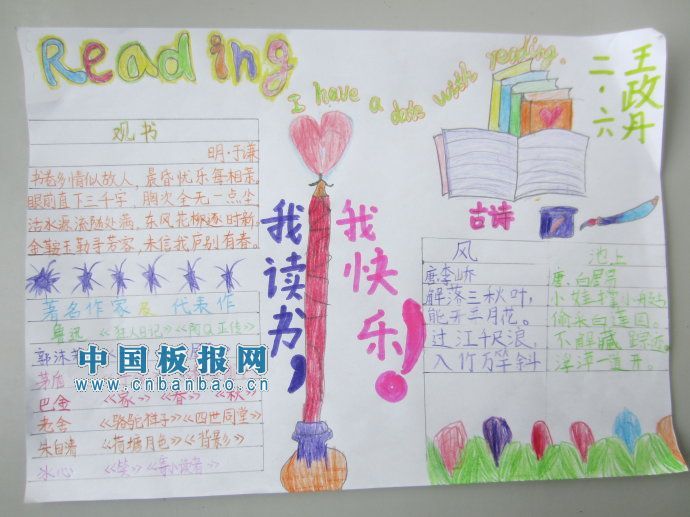 Reading
I have a date with reading.
王政丹
二.六
观书
明·于谦
书老多情似故人，晨昏忧乐每相亲。
眼前直下三千字，胸次全无一点尘
活水源流随处满，东风花柳逐时新。
金鞍玉勒寻芳客，未信我庐别有春。
著名作家及代表作
鲁迅 《狂人日记》《阿Q正传》
郭沫
茅盾
巴金 《家》《春》《秋》
老舍 《骆驼祥子》《四世同堂》
朱自清 《荷塘月色》《背影》
冰心 《笑》《寄小读者》
中国板报网
www.cnbanbao.cn
我读书，
我快乐！
古诗
风
唐.李峤
解落三秋叶，
能开二月花。
过江千尺浪，
入竹万竿斜
池上
唐.白居易
小娃撑小艇
偷采白莲回。
不解藏踪迹
浮萍一道开。